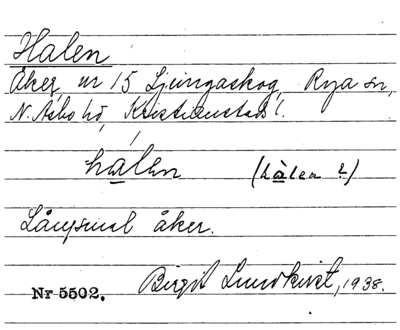 Halen
Åker nr 15 Ljungaskog, Rya sn,
N. Åsbo hd, Kristianstads l.
hálen (hàlen ?)
Långsmal åker.
Nr 5502. Birgit Lundkvist, 1938.